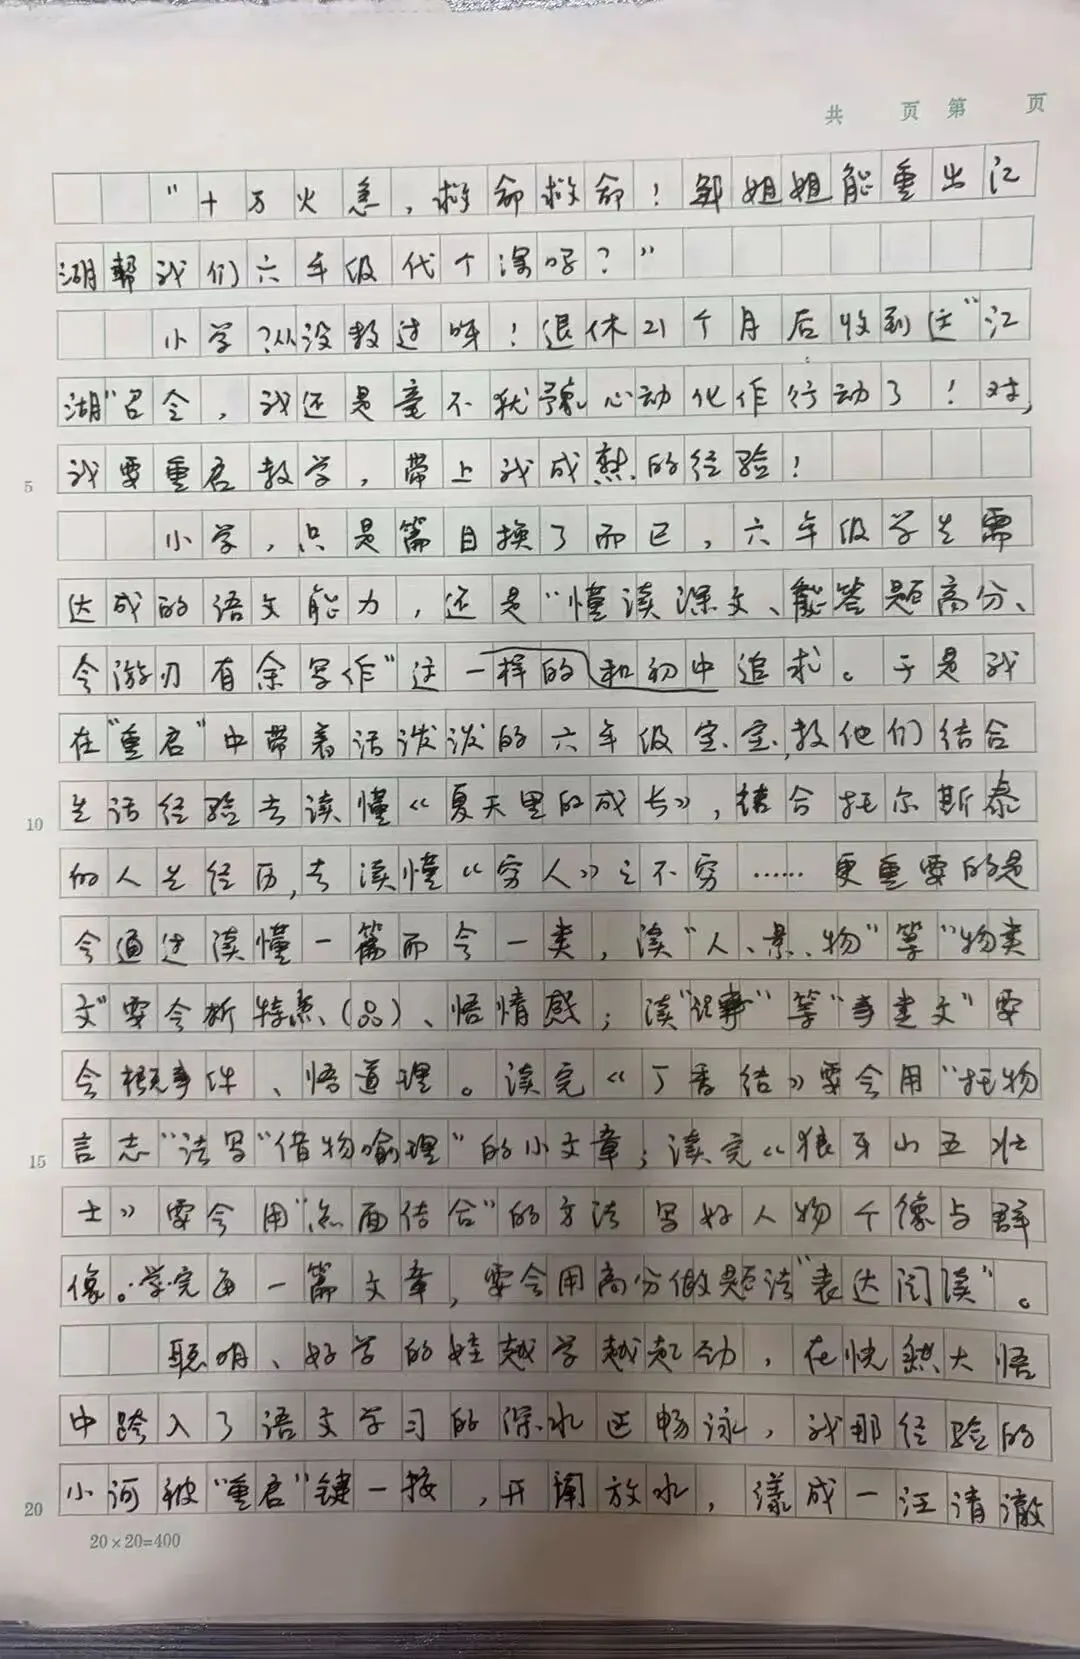 共 页 第 页
“十万火急，救命救命！郭姐姐能重出江
湖帮我们六年级代个课吗？”
小学？从没教过呀！退休21个月后收到这“江
湖”召令，我还是毫不犹豫心动化作行动了！对，
5 我要重启教学，带上我成熟的经验！
小学，只是篇目换了而已，六年级学生需
达成的语文能力，还是“懂读课文、能答题高分、
会游刃有余写作”这一样的和初中追求。于是我
在“重启”中带着活泼泼的六年级宝宝，教他们结合
10 生活经验去读懂《夏天里的成长》，结合托尔斯泰
的人生经历，去读懂《穷人》之不穷……更重要的是
会通过读懂一篇而会一类，读“人、景、物”等“物类
文”要会析特点（品）、悟情感；读“记事”等“事类文”要
会概事件、悟道理。读完《丁香结》要会用“托物
15 言志”法写“借物喻理”的小文章；读完《狼牙山五壮
士》要会用“点面结合”的方法写好人物个像与群
像。学完每一篇文章，要会用高分做题法“表达阅读”。
聪明、好学的娃越学越起劲，在恍然大悟
中跨入了语文学习的深水区畅泳，我那经验的
20 小河被“重启”键一按，开闸放水，漾成一汪清澈
20×20=400